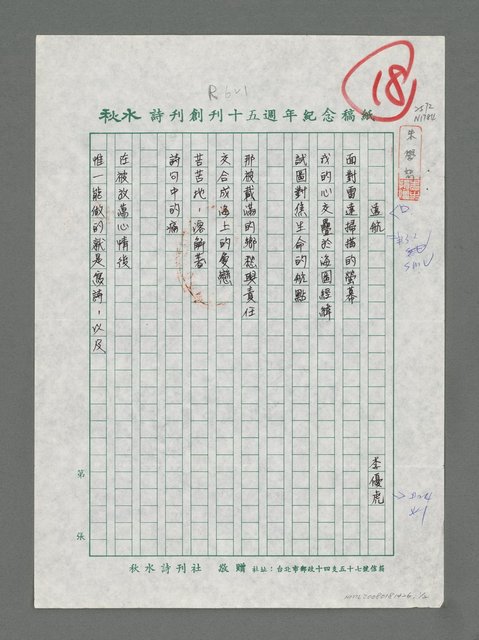 R621
18
2572
N17814
秋水 詩刊創刊十五週年紀念稿紙
遠航
李優虎
面對雷達掃描的螢幕
我的心交疊於海圖經緯
試圖對焦生命的航點
那被載滿的鄉愁與責任
交合成海上的眷戀
苦苦地，溶解著
詩句中的痛
在被放薦心情後
唯一能做的就是寫詩，以及
第 張
秋水詩刊社 敬贈 社址：台北市郵政十四支五十七號信箱